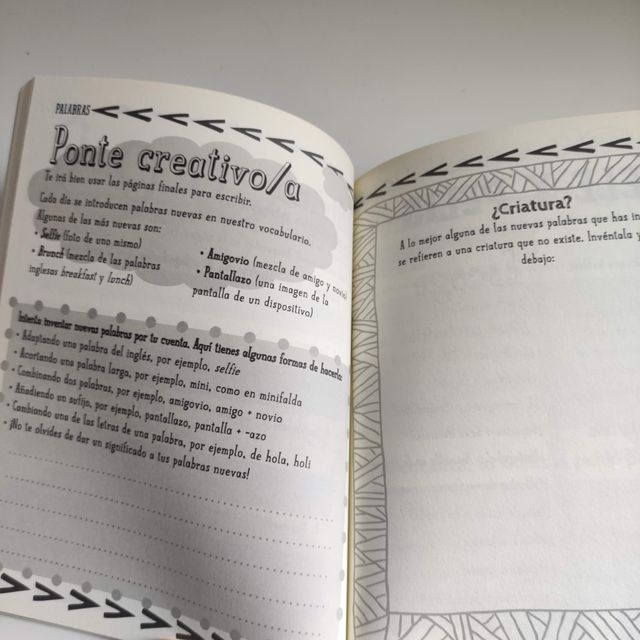 PALABRAS
Ponte creativo/a
Te irá bien usar las páginas finales para escribir.
Cada día se introducen palabras nuevas en nuestro vocabulario.
Algunas de las más nuevas son:
• Selfie (foto de uno mismo)
• Brunch (mezcla de las palabras
inglesas breakfast y lunch)
• Amigovio (mezcla de amigo y novio)
• Pantallazo (una imagen de la
pantalla de un dispositivo)
Intenta inventar nuevas palabras por tu cuenta. Aquí tienes algunas formas de hacerlo:
• Adaptando una palabra del inglés, por ejemplo, selfie
• Acortando una palabra larga, por ejemplo, mini, como en minifalda
• Combinando dos palabras, por ejemplo, amigovio, amigo + novio
• Añadiendo un sufijo, por ejemplo, pantallazo, pantalla + -azo
• Cambiando una de las letras de una palabra, por ejemplo, de hola, holi
• ¡No te olvides de dar un significado a tus palabras nuevas!
¿Criatura?
A lo mejor alguna de las nuevas palabras que has
se refieren a una criatura que no existe. Invéntala y
debajo: